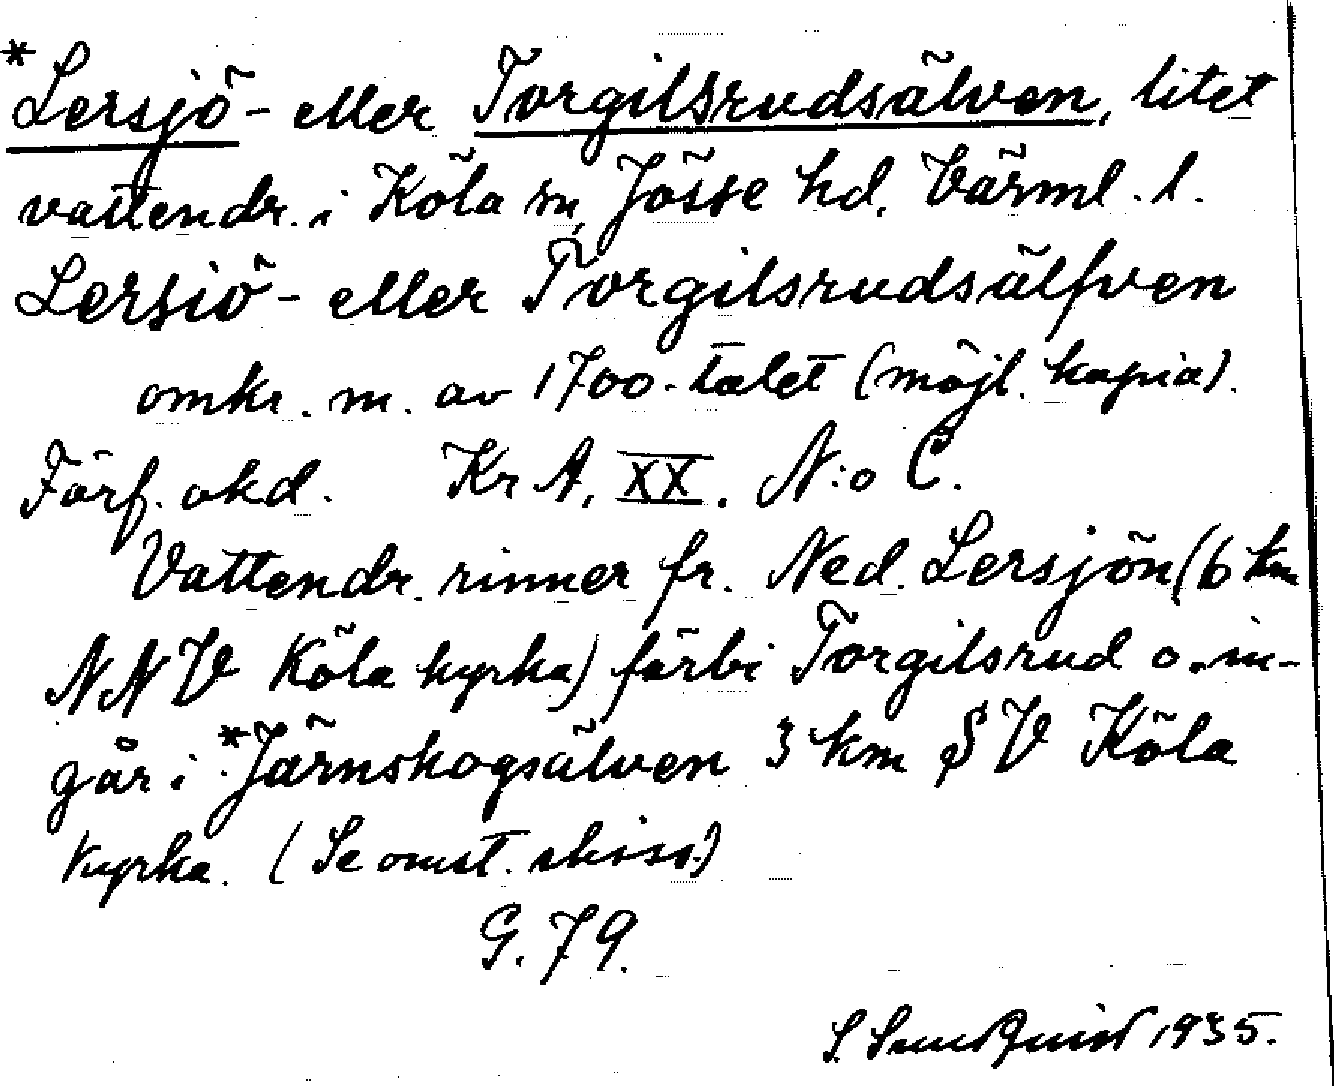 *Lersjö- eller Torgilsrudsälven, litet
vattendr. i Köla sn, Jösse hd, Värml. l.
Lersiö- eller Torgilsrudsälfven
omkr. m. av 1700-talet (möjl. kopia).
Förf. okd. Kr A, XX. N:o C.
Vattendr. rinner fr. Ned. Lersjön (6 km
NNV Köla kyrka) förbi Torgilsrud o. in-
går i *Järnskogsälven 3 km SV Köla
kyrka. (Se omst. skiss.)
G. 79.
S. Sundquist 1935.